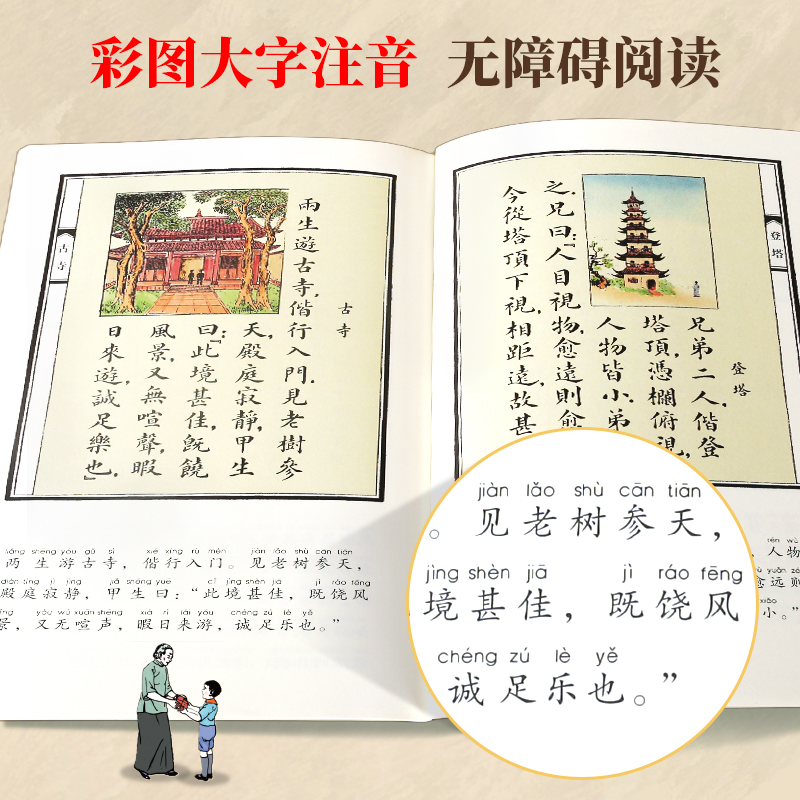 彩图大字注音 无障碍阅读
古寺
古寺
兩生遊古寺，偕行入門．見老樹參
天，殿庭寂靜，甲生
曰：「此境甚佳，既饒
風景，又無喧聲，暇
日來遊，誠足樂也」．
shēng yóu gǔ sì xié xíng rù mén jiàn lǎo shù cān tiān
两生游古寺，偕行入门。见老树参天，
diàn tíng jì jìng jiǎ shēng yuē cǐ jìng shèn jiā jì ráo fēng
殿庭寂静，甲生曰：“此境甚佳，既饶风
yòu wú xuān shēng xiá rì lái yóu chéng zú lè yě
景，又无喧声，暇日来游，诚足乐也。”
登塔
登塔
兄弟二人，偕登
塔頂，憑欄俯視，
人物皆小．弟
之．兄曰：「人目視物，愈遠則愈
今從塔頂下視，相距遠，故甚
rén wù
，人物
yuǎn zé
愈远则
xiǎo
小。”
jiàn lǎo shù cān tiān
。见老树参天，
jìng shèn jiā jì ráo fēng
境甚佳，既饶风
chéng zú lè yě
诚足乐也。”